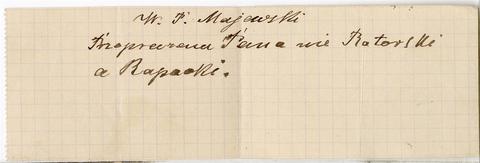 W. P. Majewski
Przepraszam Pana nie Ratorski
a Rapacki.